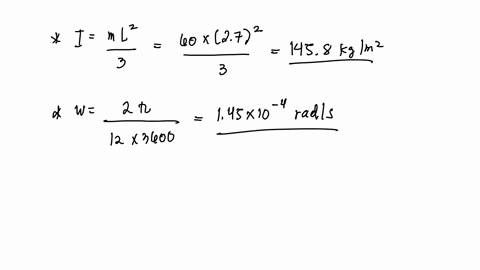 * I = mL²/3 = 60 × (2.7)²/3 = 145.8 kg/m²
* W = 2π/12 × 3600 = 1.45 × 10⁻⁴ rad/s